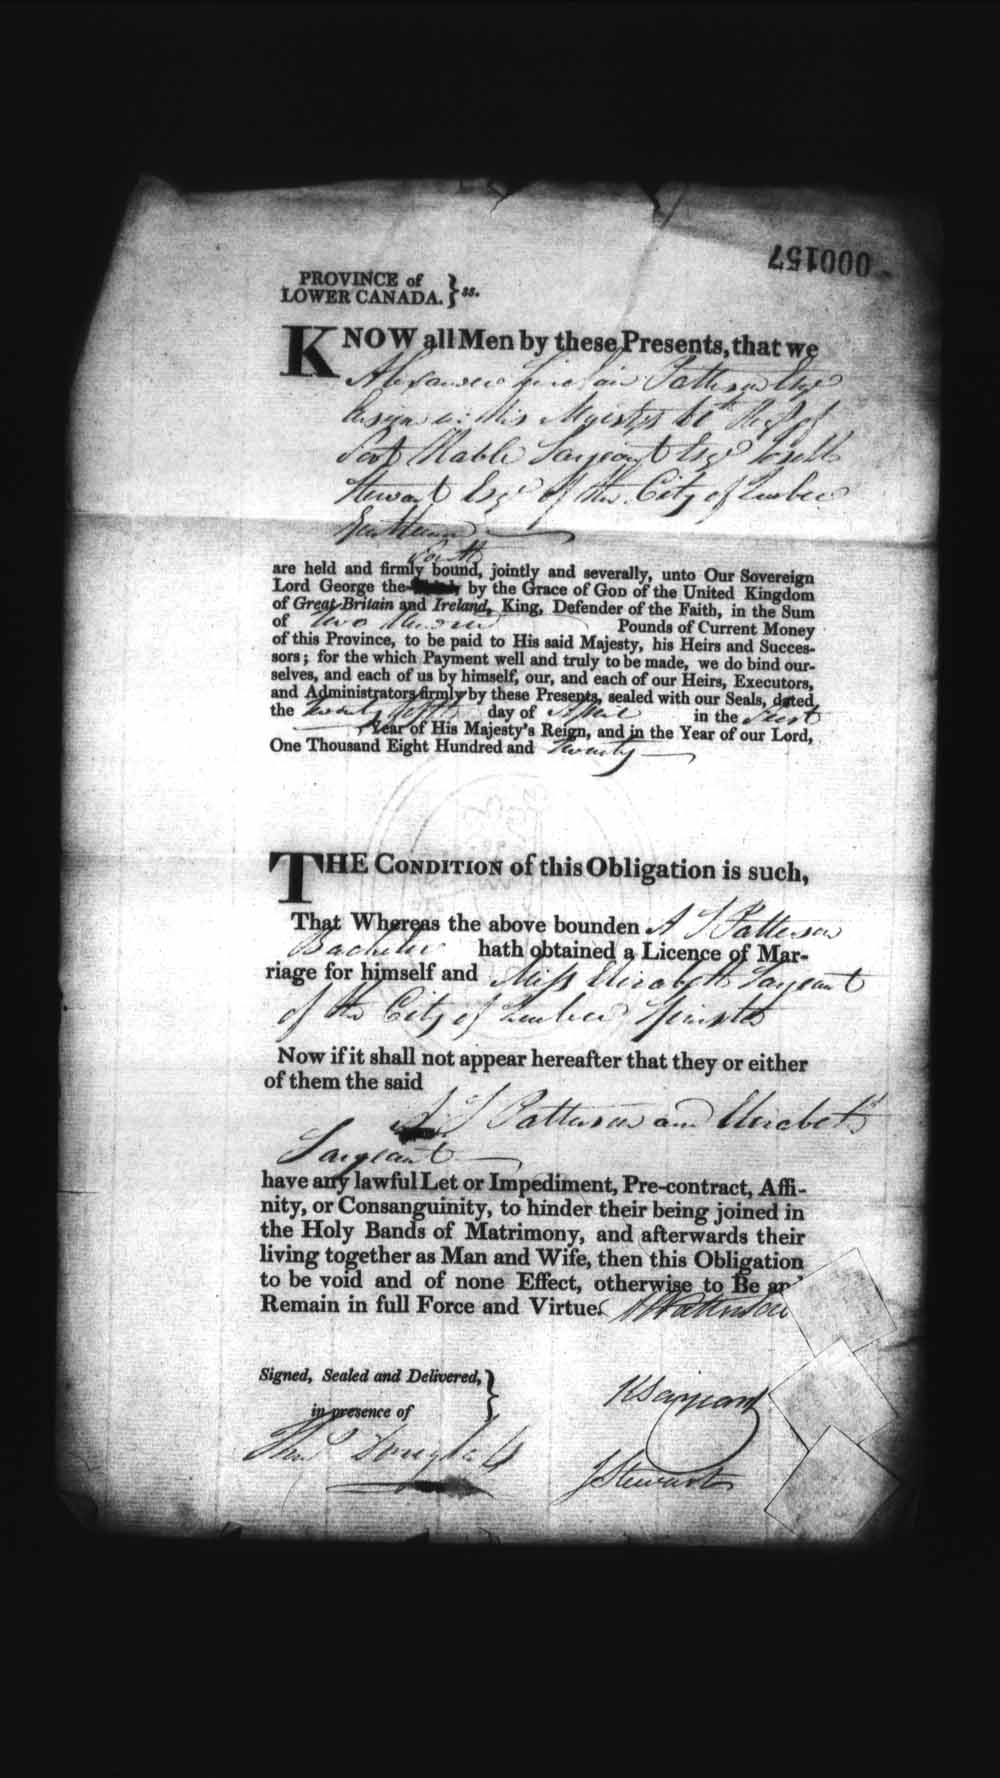 000157
PROVINCE of
LOWER CANADA. } ss.
KNOW all Men by these Presents, that we
Alexander Sinclair Patterson Esqr
Ensign in His Majestys Regt of
Foot Sargeant Esqr
Stewart Esqr of the City of Quebec
Gentlemen
Fourth
are held and firmly bound, jointly and severally, unto Our Sovereign
Lord George the by the Grace of GOD of the United Kingdom
of Great-Britain and Ireland, King, Defender of the Faith, in the Sum
of Two Hundred Pounds of Current Money
of this Province, to be paid to His said Majesty, his Heirs and Succes-
sors; for the which Payment well and truly to be made, we do bind our-
selves, and each of us by himself, our, and each of our Heirs, Executors,
and Administrators firmly by these Presents, sealed with our Seals, dated
the twenty fifth day of April in the first
Year of His Majesty's Reign, and in the Year of our Lord,
One Thousand Eight Hundred and twenty
THE CONDITION of this Obligation is such,
That Whereas the above bounden A S Patterson
Bachelor hath obtained a Licence of Mar-
riage for himself and Miss Elizabeth Sargeant
of the City of Quebec Spinster
Now if it shall not appear hereafter that they or either
of them the said
A S Patterson and Elizabeth
Sargeant
have any lawful Let or Impediment, Pre-contract, Affi-
nity, or Consanguinity, to hinder their being joined in
the Holy Bands of Matrimony, and afterwards their
living together as Man and Wife, then this Obligation
to be void and of none Effect, otherwise to Be and
Remain in full Force and Virtue.
Signed, Sealed and Delivered, }
in presence of
Thos Douglass
JStewart